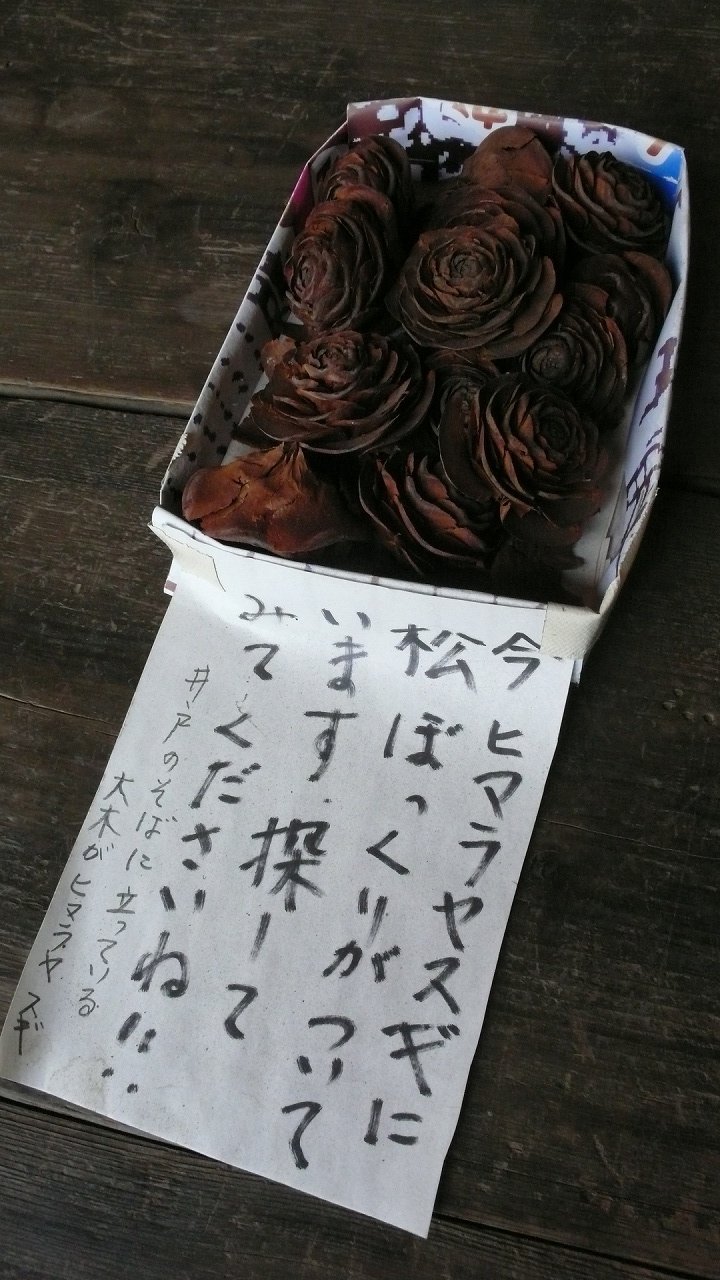 今ヒマラヤスギに
松ぼっくりがついて
います。探して
みてくださいね!!
井戸のそばに立っている
大木がヒマラヤスギ